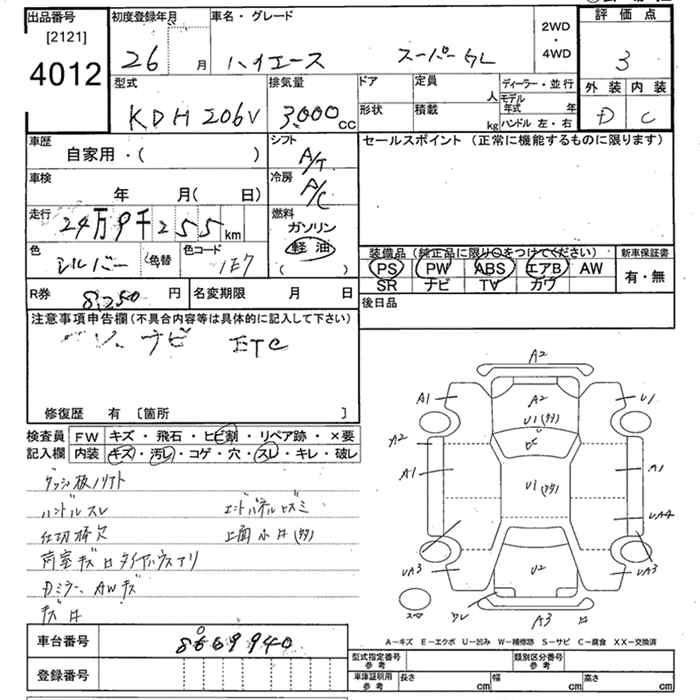 出品番号 [2121] 4012
初度登録年月 26 月
車名・グレード ハイエース スーパーGL
2WD ・ 4WD
評価点 3
外装 内装
D C
型式 KDH206V
排気量 3,000 CC
ドア 形状
定員 人
積載 kg
ディーラー・並行
モデル年式 年
ハンドル 左・右
車歴 自家用・( )
シフト A/T
セールスポイント (正常に機能するものに限ります)
車検 年 月( 日)
冷房 A/C
走行 24万9千255km
燃料 ガソリン 軽油 ( )
色 シルバー (色替) 色コード 1E7
装備品 (純正品に限り○をつけてください)
PS PW ABS エアB AW
SR ナビ TV カワ
新車保証書 有・無
R券 8,250 円 名変期限 月 日
後日品
注意事項申告欄(不具合内容等は具体的に記入して下さい)
ナビ ETC
修復歴 有 〔箇所 〕
検査員 FW キズ・飛石・ヒビ割・リペア跡・×要
記入欄 内装 キズ・汚レ・コゲ・穴・スレ・キレ・破レ
ハンドルスレ
仕切棒欠
Dミラー、AWキズ
A2
A1 A2 U1
U1
A2
A1 U1 A1
UA4
UA3 U2 UA3
A3
A-キズ E-エクボ U-凹み W-補修跡 S-サビ C-腐食 XX-交換済
車台番号
登録番号
型式指定番号 参考
類別区分番号 参考
車庫証明用 参考 長さ cm 幅 cm 高さ cm